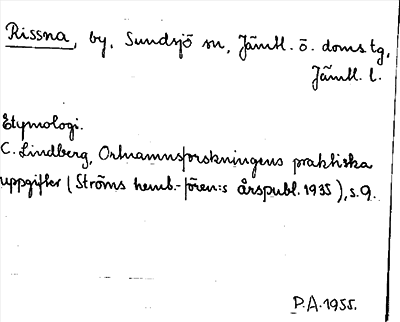 Rissna, by, Sundsjö sn, Jämtl. ö. doms tg,
Jämtl. l.
Etymologi.
C. Lindberg, Ortnamnsforskningens praktiska
uppgifter (Ströms hemb.-fören:s årspubl. 1935), s. 9.
P.A. 1955.